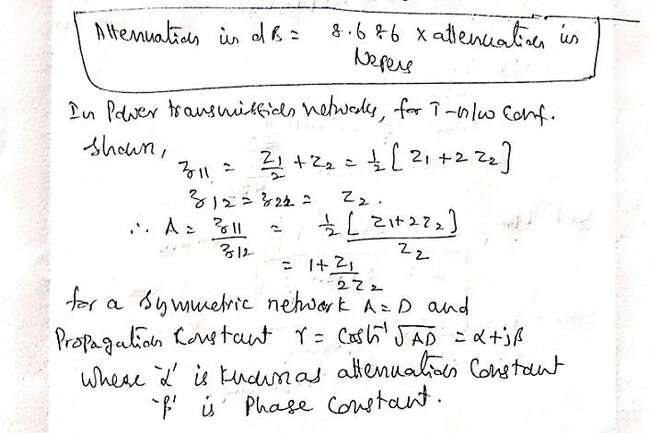 Attenuation in dB = 8.686 x attenuation in
Nepers
In Power transmission networks, for T-n/w Conf.
Shown,
z11 = Z1/2 + Z2 = 1/2 [Z1 + 2Z2]
z12 = z22 = Z2.
∴ A = z11/z12 = 1/2 [Z1+2Z2] / Z2
= 1 + Z1/2Z2
for a Symmetric network A = D and
Propagation Constant γ = Cosh⁻¹ √AD = α + jβ
Where 'α' is known as attenuation Constant
'β' is Phase Constant.